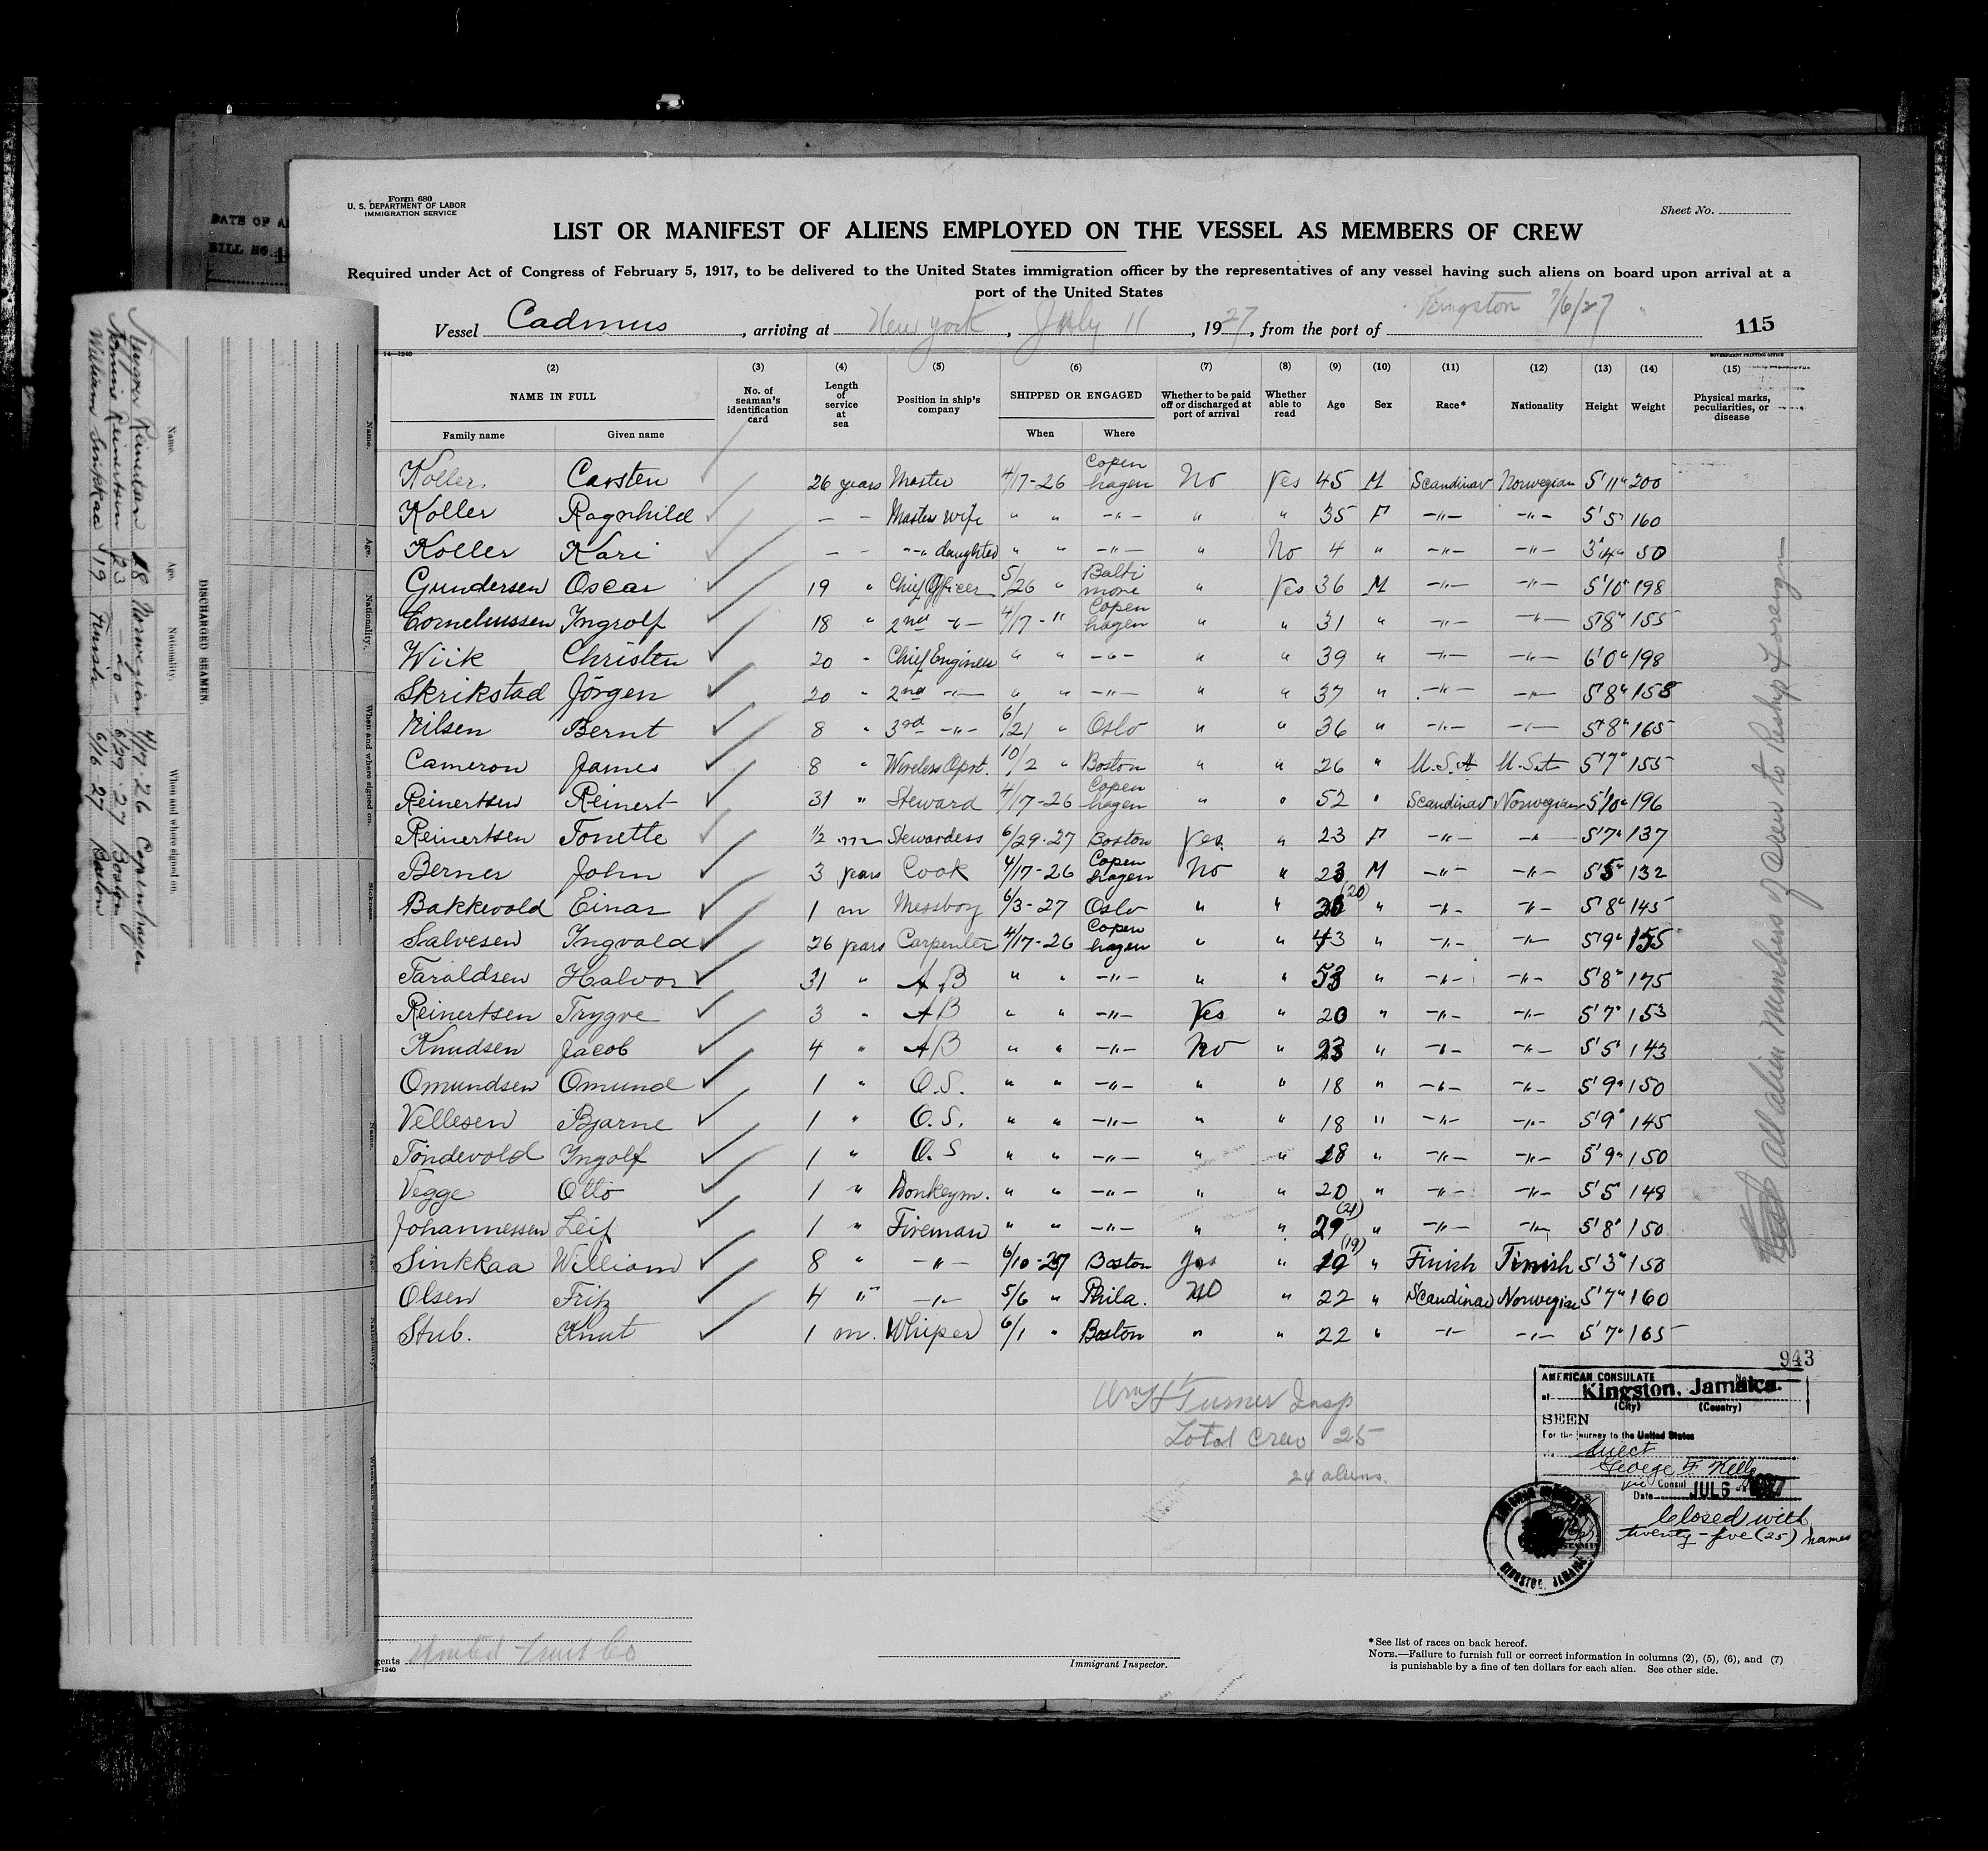 DATE OF A
BILL NO. 1
Form 680
U. S. DEPARTMENT OF LABOR
IMMIGRATION SERVICE
Sheet No.
LIST OR MANIFEST OF ALIENS EMPLOYED ON THE VESSEL AS MEMBERS OF CREW
Required under Act of Congress of February 5, 1917, to be delivered to the United States immigration officer by the representatives of any vessel having such aliens on board upon arrival at a
port of the United States
Vessel Cadmus, arriving at New York, July 11, 1927, from the port of Kingston 7/6/27
115
14—1240
GOVERNMENT PRINTING OFFICE
(2) (3) (4) (5) (6) (7) (8) (9) (10) (11) (12) (13) (14) (15)
NAME IN FULL No. of seaman's identification card Length of service at sea Position in ship's company SHIPPED OR ENGAGED Whether to be paid off or discharged at port of arrival Whether able to read Age Sex Race* Nationality Height Weight Physical marks, peculiarities, or disease
Family name Given name When Where
Koller Carsten 26 years Master 4/17-26 Copenhagen No Yes 45 M Scandinav Norwegian 5'11" 200
Koller Ragnhild — - Masters wife " " -"- " " 35 F -"- -"- 5'5" 160
Koller Kari — - -"- daughter " " -"- " No 4 " -"- -"- 3'4" 50
Gundersen Oscar 19 " Chief Officer 5/26 " Baltimore " Yes 36 M -"- -"- 5'10" 198
Corneliussen Ingrolf 18 " 2nd -"- 4/17-" Copenhagen " " 31 " -"- -"- 5'8" 155
Wiik Christen 20 " Chief Engineer " " -"- " " 39 " -"- -"- 6'0" 198
Skrikstad Jörgen 20 " 2nd -"- " " -"- " " 37 " -"- -"- 5'8" 158
Nilsen Bernt 8 " 3rd -"- 6/21 " Oslo " " 36 " -"- -"- 5'8" 165
Cameron James 8 " Wireless Oprt. 10/2 " Boston " " 26 " U.S.A U.S.A 5'7" 155
Reinertsen Reinert 31 " Steward 4/17-26 Copenhagen " " 52 " Scandinav Norwegian 5'10" 196
Reinertsen Tonette 1/2 m Stewardess 6/29-27 Boston Yes " 23 F -"- -"- 5'7" 137
Berner John 3 years Cook 4/17-26 Copenhagen No " 23 M -"- -"- 5'5" 132
Bakkevold Einar 1 m Messboy 6/3-27 Oslo " " (20) " -"- -"- 5'8" 145
Salvesen Ingvald 26 years Carpenter 4/17-26 Copenhagen " " 43 " -"- -"- 5'9" 155
Taraldsen Halvor 31 " AB " " -"- " " 53 " -"- -"- 5'8" 175
Reinertsen Trygve 3 " AB " " -"- Yes " 20 " -"- -"- 5'7" 153
Knudsen Jacob 4 " AB " " -"- No " 23 " -"- -"- 5'5" 143
Omundsen Omund 1 " O.S. " " -"- " " 18 " -"- -"- 5'9" 150
Vellesen Bjarne 1 " O.S. " " -"- " " 18 " -"- -"- 5'9" 145
Töndevold Ingolf 1 " O.S " " -"- " " 18 " -"- -"- 5'9" 150
Vegge Otto 1 " Donkeym. " " -"- " " 20 " -"- -"- 5'5" 148
Johannessen Leif 1 " Fireman " " -"- " " 29 (21) " -"- -"- 5'8" 150
Sinkkaa William 8 " -"- 6/10-27 Boston Yes " 19 (19) " Finish Finish 5'3" 150
Olsen Fritz 4 " -"- 5/6 " Phila. No " 22 " Scandinav Norwegian 5'7" 160
Stub. Knut 1 m. Whiper 6/1 " Boston " " 22 " -"- -"- 5'7" 165
943
Wm H Turner Insp
Total Crew 25
24 aliens.
AMERICAN CONSULATE
at Kingston, Jamaica.
(City) (Country)
SEEN
For the journey to the United States
direct
George F. Kelly
Vice Consul
Date JUL 6 1927
Closed with
twenty-five (25) names
KINGSTON, JAMAICA
All alien members of crew to Reship Foreign
gents United Fruit Co
—1240
Immigrant Inspector.
*See list of races on back hereof.
NOTE.—Failure to furnish full or correct information in columns (2), (5), (6), and (7)
is punishable by a fine of ten dollars for each alien. See other side.
DISCHARGED SEAMEN.
Name. Age. Nationality. When and where signed on.
Trygve Reinertsen 18 Norwegian 4/17-26 Copenhagen
Tonnie Reinertsen 23 -"- 6/29-27 Boston
William Sinkkaa 19 Finish 6/16-27 Boston
Name. Age. Nationality. When and where signed on. Sickness.
Name. Age. Nationality.